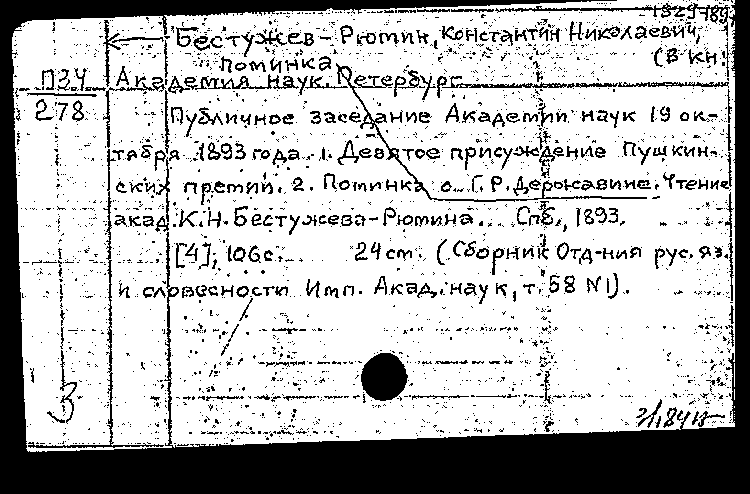 1829-1897
Бестужев-Рюмин, Константин Николаевич,
Поминка (В кн.:
ПЗ4 Академия наук. Петербург.
278 Публичное заседание Академии наук 19 ок-
тября 1893 года. 1. Девятое присуждение Пушкин-
ских премий. 2. Поминка о Г.Р. Державине. Чтение
акад. К.Н. Бестужева-Рюмина. Спб., 1893.
[4], 106 с. 24 cm. (Сборник Отд-ния рус. яз.
и словесности Имп. Акад. наук, т. 58 N1).
3